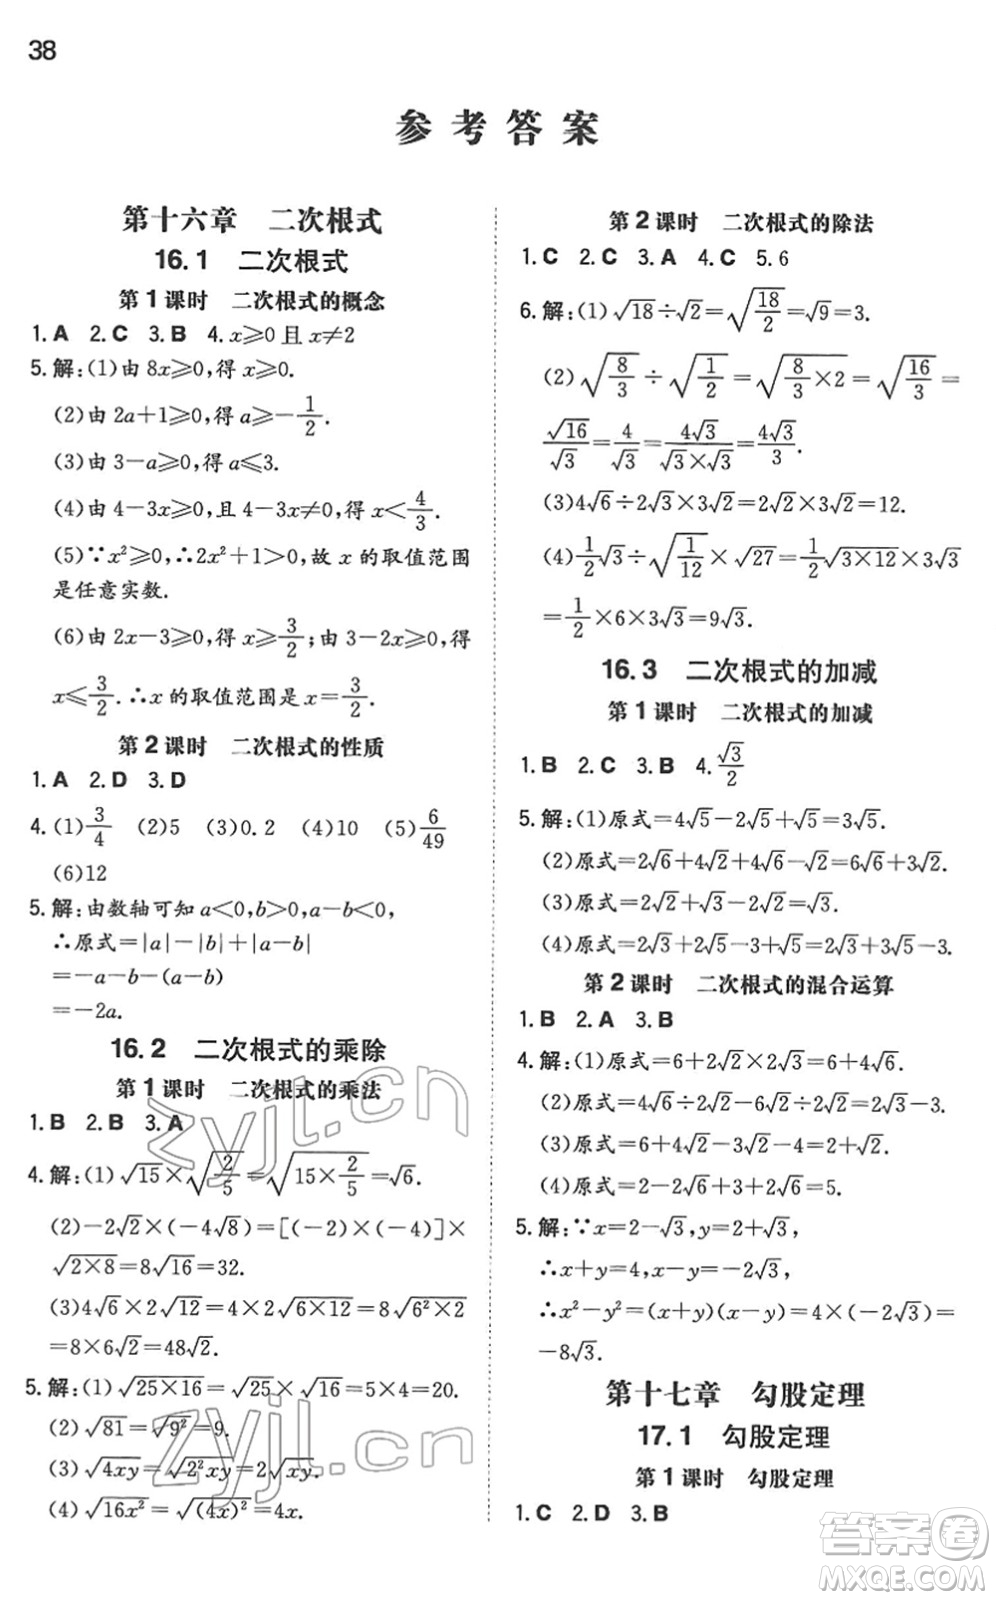 38
参考答案
第十六章 二次根式
16.1 二次根式
第1课时 二次根式的概念
1.A 2.C 3.B 4.x⩾0且x≠2
5.解:(1)由8x⩾0,得x⩾0.
(2)由2a+1⩾0,得a⩾-1/2.
(3)由3-a⩾0,得a⩽3.
(4)由4-3x⩾0,且4-3x≠0,得x<4/3.
(5)∵x²⩾0,∴2x²+1>0,故x的取值范围
是任意实数.
(6)由2x-3⩾0,得x⩾3/2;由3-2x⩾0,得
x⩽3/2.∴x的取值范围是x=3/2.
第2课时 二次根式的性质
1.A 2.D 3.D
4.(1)3/4 (2)5 (3)0.2 (4)10 (5)6/49
(6)12
5.解:由数轴可知a<0,b>0,a-b<0,
∴原式=|a|-|b|+|a-b|
=-a-b-(a-b)
=-2a.
16.2 二次根式的乘除
第1课时 二次根式的乘法
1.B 2.B 3.A
4.解:(1)√15×√(2/5)=√(15×2/5)=√6.
(2)-2√2×(-4√8)=[(-2)×(-4)]×
√(2×8)=8√16=32.
(3)4√6×2√12=4×2√(6×12)=8√(6²×2)
=8×6√2=48√2.
5.解:(1)√(25×16)=√25×√16=5×4=20.
(2)√81=√9²=9.
(3)√(4xy)=√(2²xy)=2√(xy).
(4)√(16x²)=√((4x)²)=4x.
第2课时 二次根式的除法
1.C 2.C 3.A 4.C 5.6
6.解:(1)√18÷√2=√(18/2)=√9=3.
(2)√(8/3)÷√(1/2)=√(8/3×2)=√(16/3)=
√16/√3=4/√3=4√3/(√3×√3)=4√3/3.
(3)4√6÷2√3×3√2=2√2×3√2=12.
(4)1/2√3÷√(1/12)×√27=1/2√(3×12)×3√3
=1/2×6×3√3=9√3.
16.3 二次根式的加减
第1课时 二次根式的加减
1.B 2.C 3.B 4.√3/2
5.解:(1)原式=4√5-2√5+√5=3√5.
(2)原式=2√6+4√2+4√6-√2=6√6+3√2.
(3)原式=2√2+3√2-3√2=2√2.
(4)原式=2√3+2√5-3-√5=2√3+√5-3.
第2课时 二次根式的混合运算
1.B 2.A 3.B
4.解:(1)原式=6+2√2×2√3=6+4√6.
(2)原式=4√6÷2√2-6√2÷2√2=2√3-3.
(3)原式=4√6-3√2-3√6=√6-3√2.
(4)原式=2-2√6+3+2√6=5.
5.解:∵x=2-√3,y=2+√3,
∴x+y=4,x-y=-2√3,
∴x²-y²=(x+y)(x-y)=4×(-2√3)=
-8√3.
第十七章 勾股定理
17.1 勾股定理
第1课时 勾股定理
1.C 2.D 3.B
zyjl.cn
zyjl.cn
答案卷
MXQE.COM